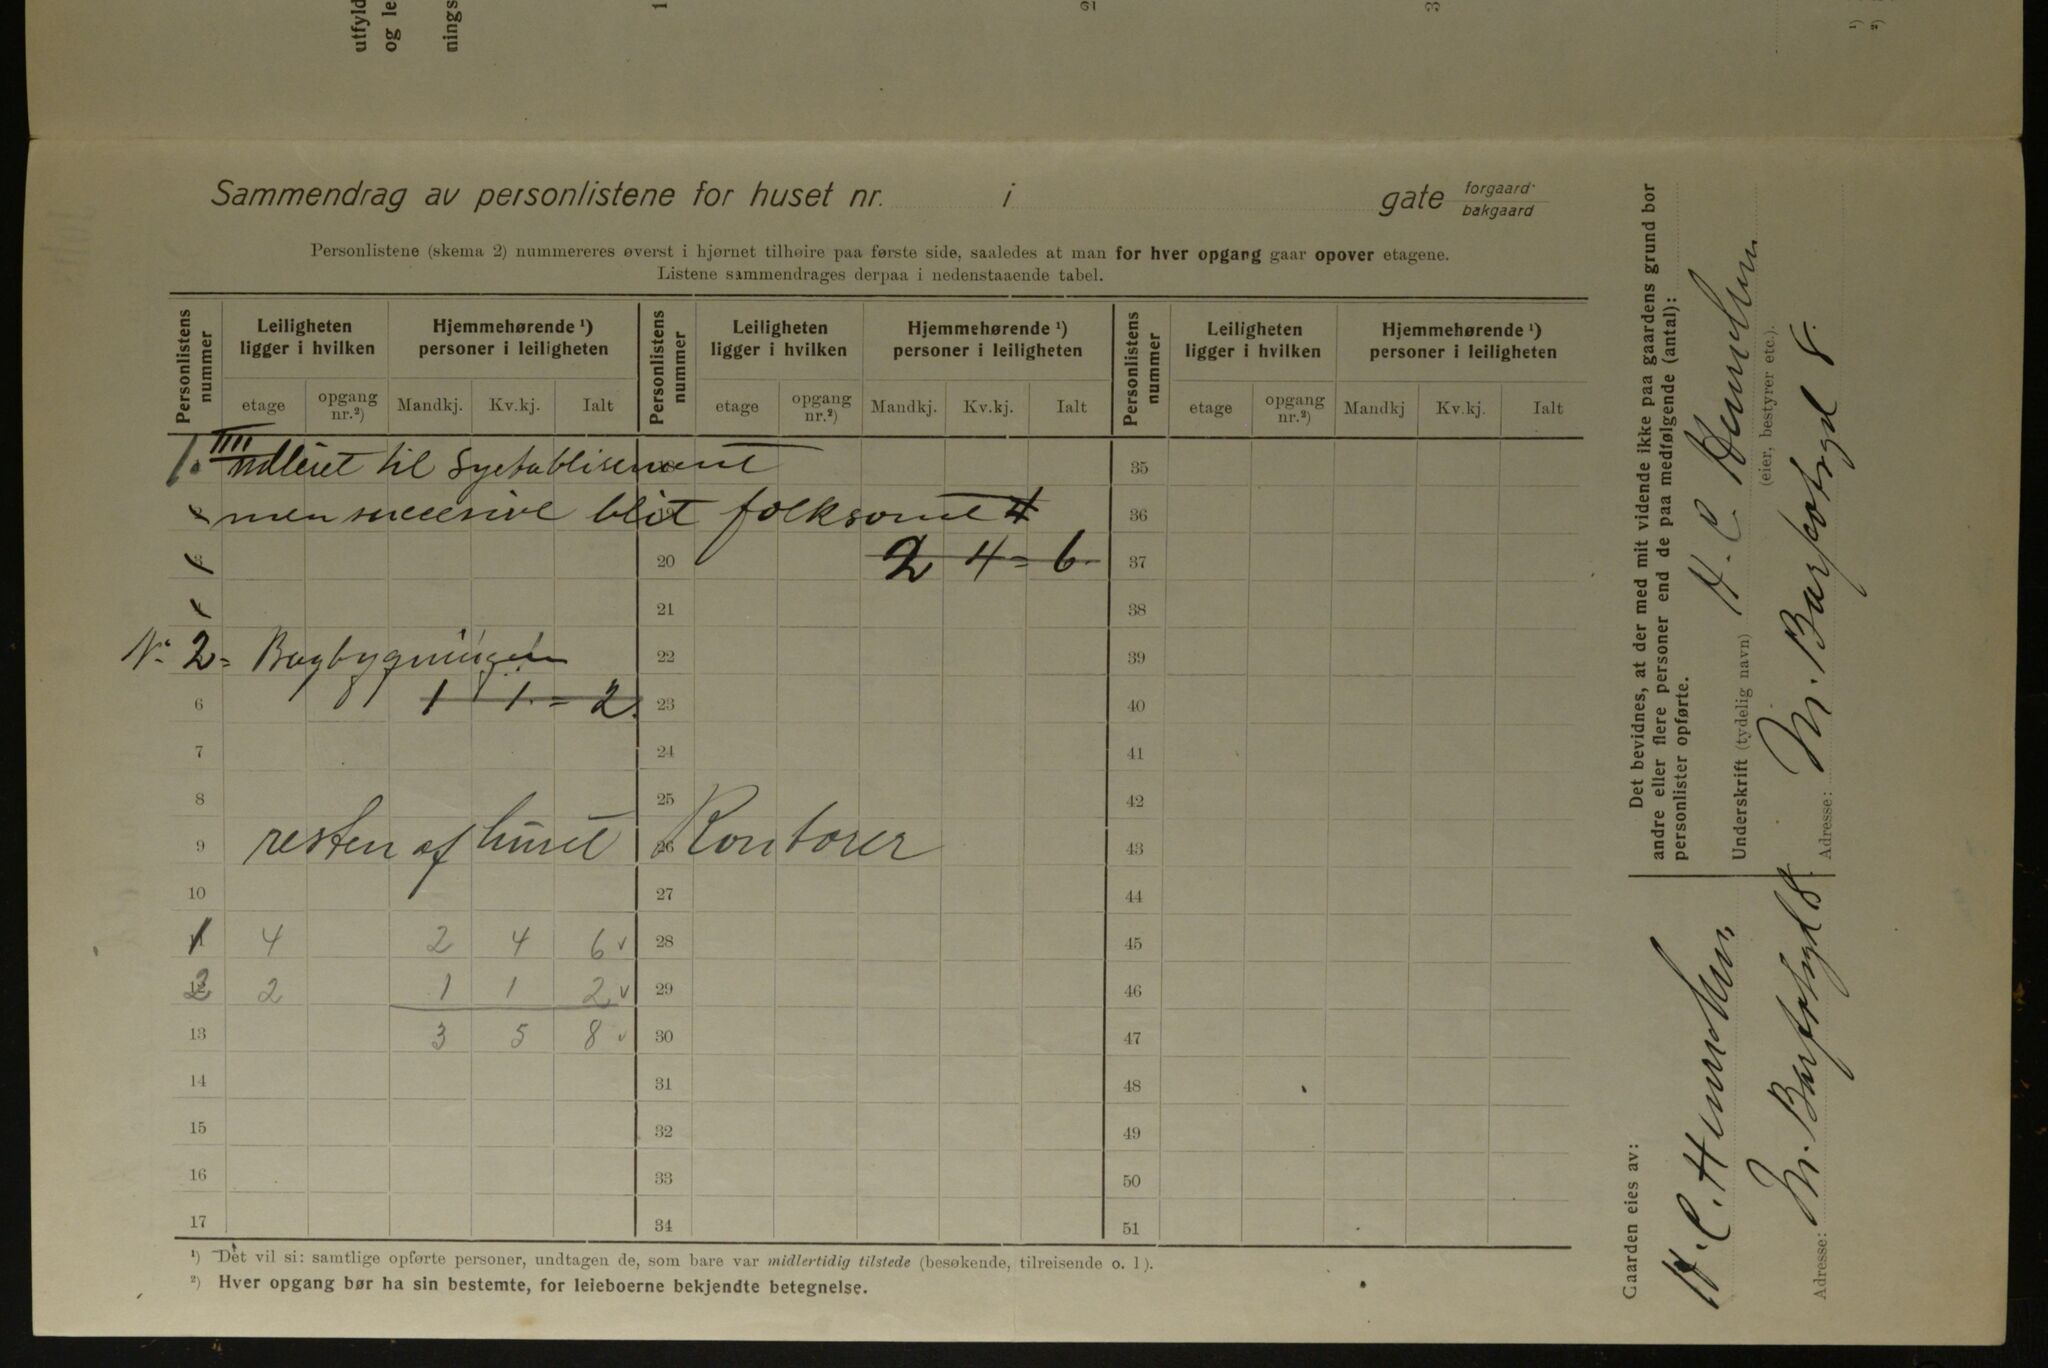 utfyld
og le
nings
1
2
3
1)
2)
Sammendrag av personlistene for huset nr. i gate forgaard bakgaard
Personlistene (skema 2) nummereres øverst i hjørnet tilhøire paa første side, saaledes at man for hver opgang gaar opover etagene.
Listene sammendrages derpaa i nedenstaaende tabel.
Personlistens nummer Leiligheten ligger i hvilken Hjemmehørende ¹) personer i leiligheten Personlistens nummer Leiligheten ligger i hvilken Hjemmehørende ¹) personer i leiligheten Personlistens nummer Leiligheten ligger i hvilken Hjemmehørende ¹) personer i leiligheten
etage opgang nr.²) Mandkj. Kv.kj. Ialt etage opgang nr.²) Mandkj. Kv.kj. Ialt etage opgang nr.²) Mandkj Kv.kj. Ialt
1. IIII udleiet til Syetablisement 35
men succesive blit folksomt 36
20 2 4 = 6 37
21 38
No 2 = Bagbygningen 22 39
6 1 1 = 2. 23 40
7 24 41
8 25 42
9 resten af huset 26 Kontorer 43
10 27 44
1 4 2 4 6 28 45
2 2 1 1 2 29 46
13 3 5 8 30 47
14 31 48
15 32 49
16 33 50
17 34 51
¹) Det vil si: samtlige opførte personer, undtagen de, som bare var midlertidig tilstede (besøkende, tilreisende o. l).
²) Hver opgang bør ha sin bestemte, for leieboerne bekjendte betegnelse.
Det bevidnes, at der med mit vidende ikke paa gaardens grund bor
andre eller flere personer end de paa medfølgende (antal):
personlister opførte.
Underskrift (tydelig navn) H. C. Henrichsen
(eier, bestyrer etc.).
Adresse: M. Barfotsgd 8.
Gaarden eies av:
H. C. Henrichsen
Adresse: M. Barfotsgd 8.